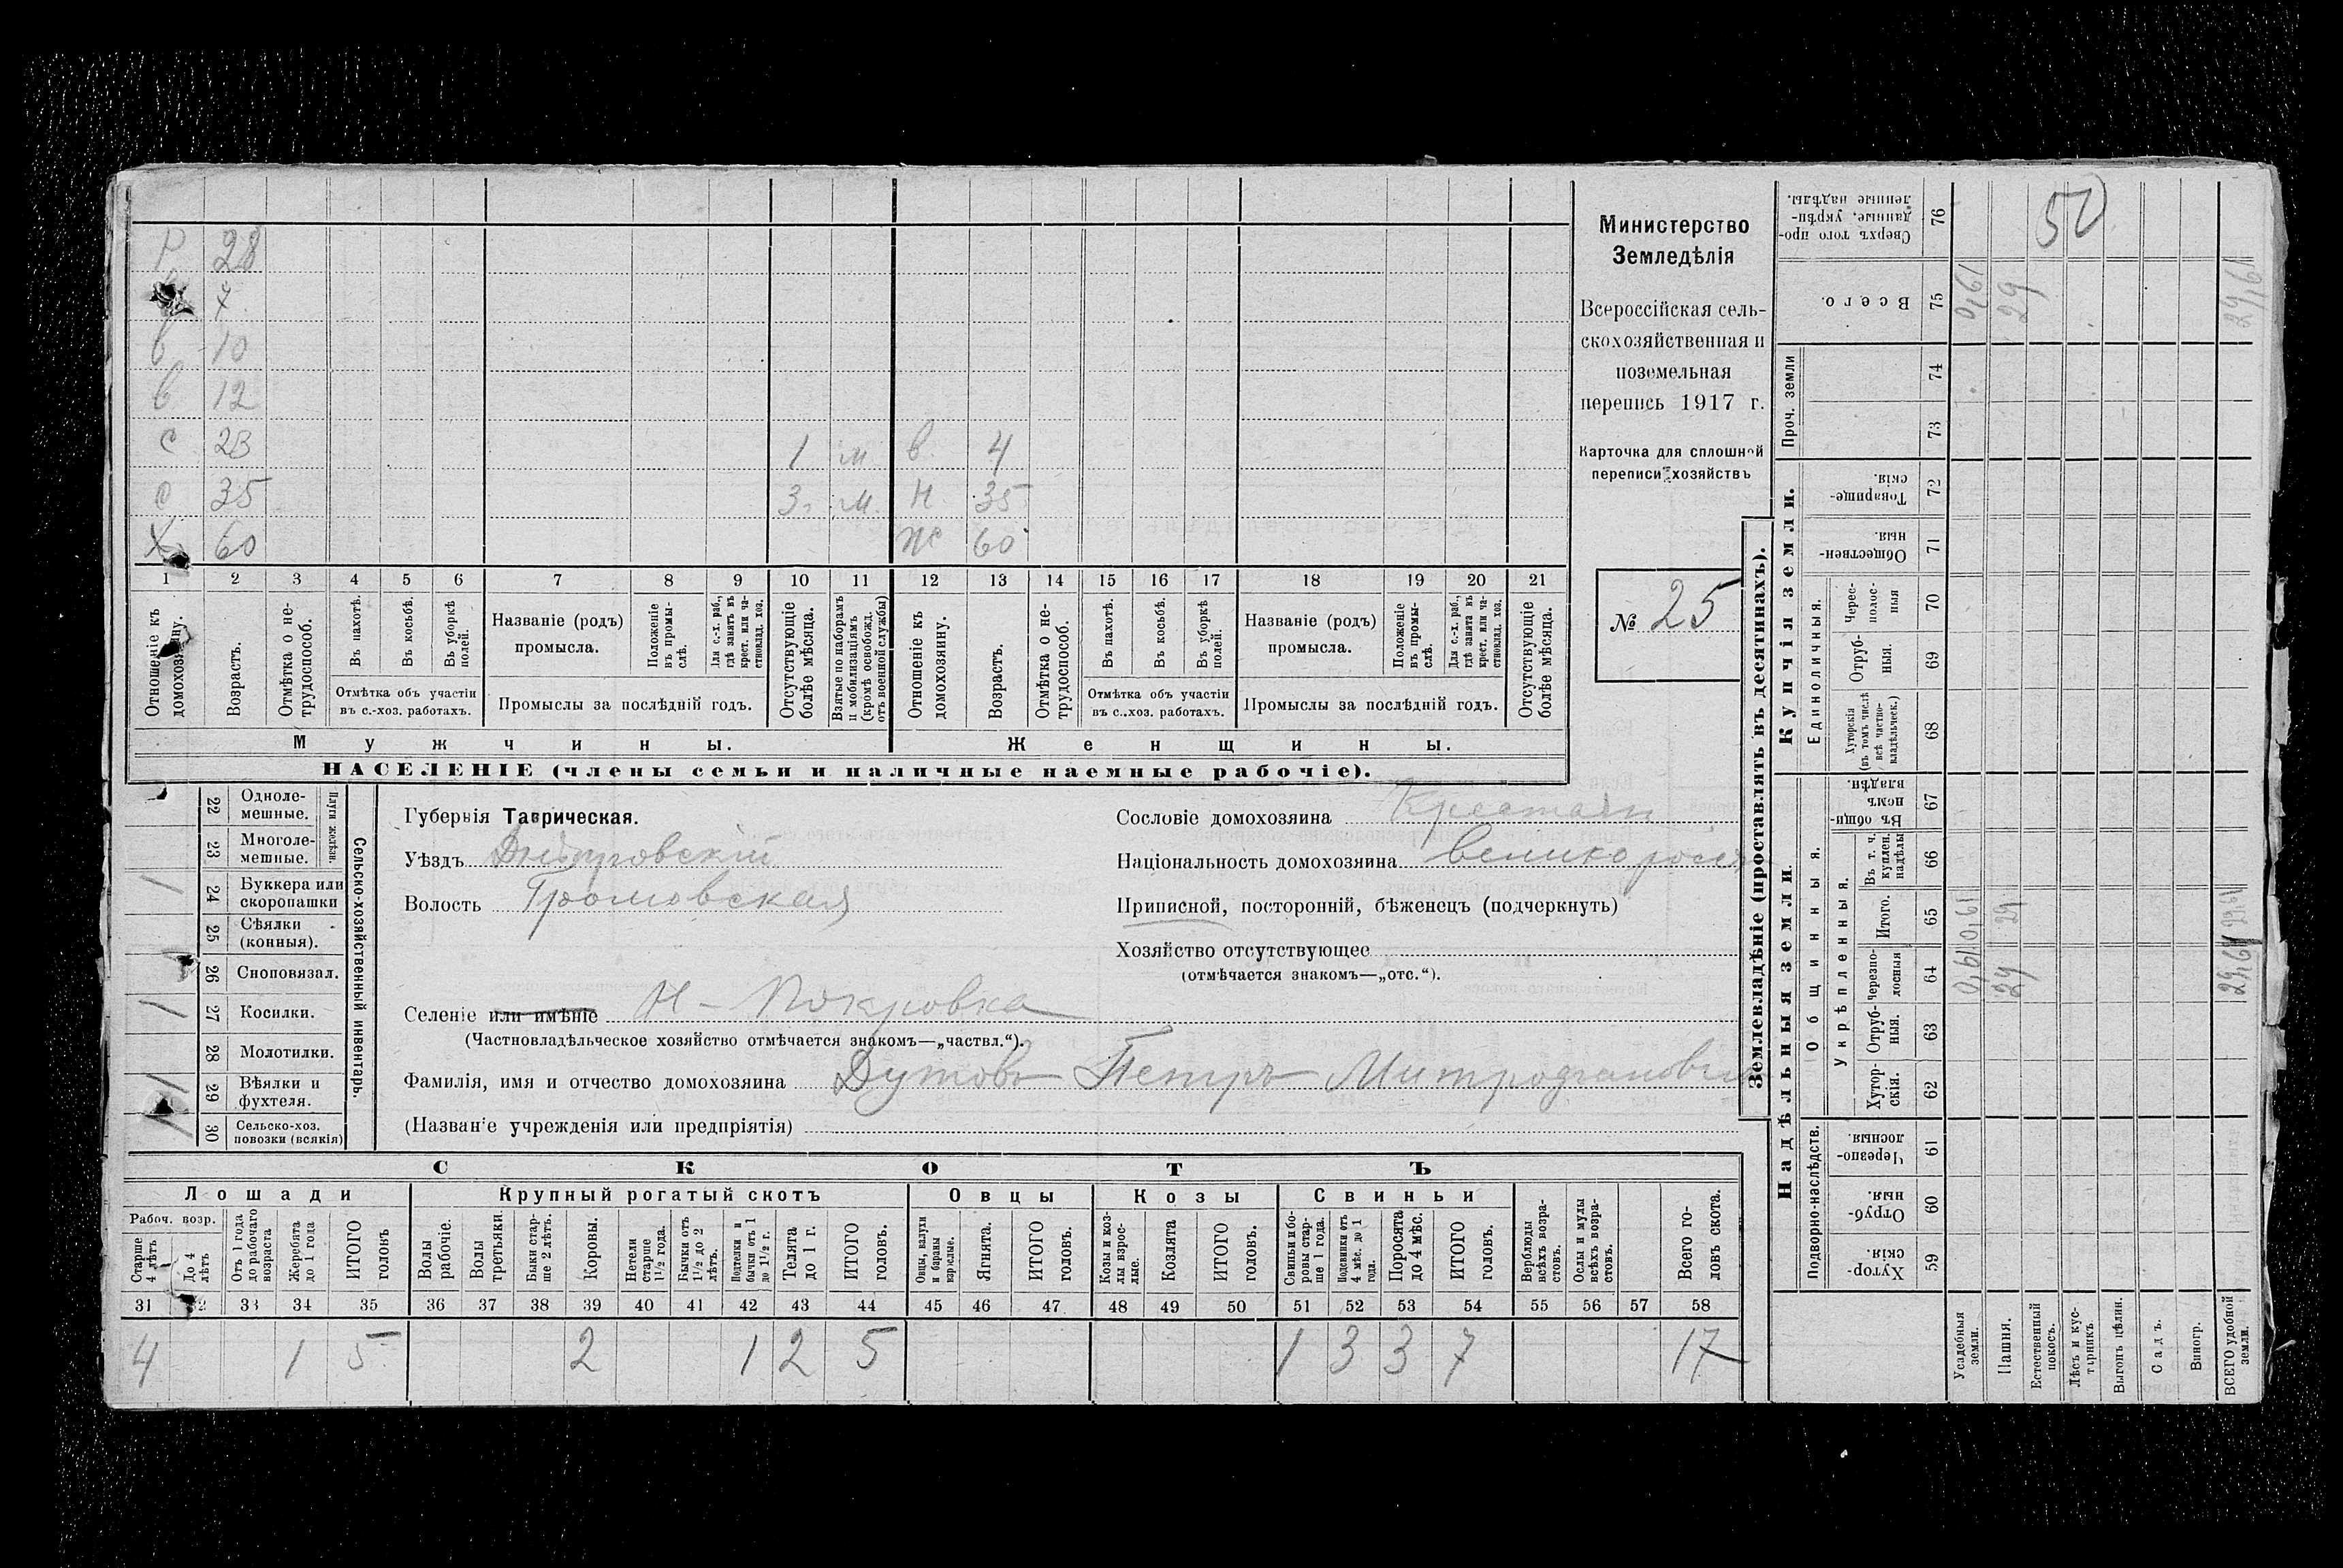 Р 28
7
в 10
в 12
с 23 1 м в 4
с 35 3 м Н 35
Х 60 Ж 60
1 2 3 4 5 6 7 8 9 10 11 12 13 14 15 16 17 18 19 20 21
Отношеніе къ домохозяину.
Возрастъ.
Отмѣтка о нетрудоспособ.
Въ пахотѣ.
Въ косьбѣ.
Въ уборкѣ полей.
Отмѣтка объ участіи
въ с.-хоз. работахъ.
Названіе (родъ)
промысла.
Положеніе въ промыслѣ.
Для с.-х. раб., гдѣ занятъ въ крест. или частновлад. хоз.
Промыслы за послѣдній годъ.
Отсутствующіе болѣе мѣсяца.
Взятые по наборамъ и мобилизаціямъ (кромѣ освобожд. отъ военной службы)
Отношеніе къ домохозяину.
Возрастъ.
Отмѣтка о нетрудоспособ.
Въ пахотѣ.
Въ косьбѣ.
Въ уборкѣ полей.
Отмѣтка объ участіи
въ с.-хоз. работахъ.
Названіе (родъ)
промысла.
Положеніе въ промыслѣ.
Для с.-х. раб., гдѣ занята въ крест. или частновлад. хоз.
Промыслы за послѣдній годъ.
Отсутствующіе болѣе мѣсяца.
Мужчины. Женщины.
НАСЕЛЕНІЕ (члены семьи и наличные наемные рабочіе).
Министерство
Земледѣлія
Всероссійская сель-
скохозяйственная и
поземельная
перепись 1917 г.
Карточка для сплошной
переписи хозяйствъ
№ 25
Сельско-хозяйственный инвентарь.
Плуги желѣзн.
22 Одноле-
мешные.
23 Многоле-
мешные.
1 24 Буккера или
скоропашки
25 Сѣялки
(конныя).
26 Сноповязал.
1 27 Косилки.
28 Молотилки.
1 29 Вѣялки и
фухтеля.
30 Сельско-хоз.
повозки (всякія)
Губернія Таврическая.
Уѣздъ Днѣпровскій
Волость Громовская
Селеніе или имѣніе Н-Покровка
(Частновладѣльческое хозяйство отмѣчается знакомъ—„частвл.“).
Фамилія, имя и отчество домохозяина Дутовъ Петръ Митрофановичъ
(Названіе учрежденія или предпріятія)
Сословіе домохозяина Крестьян
Національность домохозяина великоросс
Приписной, посторонній, бѣженецъ (подчеркнуть)
Хозяйство отсутствующее
(отмѣчается знакомъ—„отс.“).
СКОТЪ
Лошади Крупный рогатый скотъ Овцы Козы Свиньи
Рабоч. возр.
Старше 4 лѣтъ
До 4 лѣтъ
Отъ 1 года до рабочаго возраста
Жеребята до 1 года
ИТОГО головъ
Волы рабочіе.
Волы третьяки.
Быки старше 2 лѣтъ.
Коровы.
Нетели старше 1½ года.
Бычки отъ 1½ до 2 лѣтъ.
Подтелки и бычки отъ 1 до 1½ г.
Телята до 1 г.
ИТОГО головъ.
Овцы, валухи и бараны взрослые.
Ягнята.
ИТОГО головъ.
Козы и козлы взрослые.
Козлята
ИТОГО головъ.
Свиньи и боровы старше 1 года.
Подсвинки отъ 4 мѣс. до 1 года.
Поросята до 4 мѣс.
ИТОГО головъ.
Верблюды всѣхъ возрастовъ.
Ослы и мулы всѣхъ возрастовъ.
Всего головъ скота.
31 32 33 34 35 36 37 38 39 40 41 42 43 44 45 46 47 48 49 50 51 52 53 54 55 56 57 58
4 1 5 2 1 2 5 1 3 3 7 17
Землевладѣніе (проставлять въ десятинахъ).
Купчія земли.
Надѣльныя земли.
Сверхъ того проданные, укрѣпленные надѣлы. 76 50
Всего. 75 0,61 29 29,61
Проч. земли
74
73
Товарищескія. 72
Общественныя. 71
Единоличныя.
Чересполосныя 70
Отрубныя. 69
Хуторскія (въ томъ числѣ всѣ частновладѣльческ.) 68
Общинныя.
Въ общинномъ владѣн. 67
Укрѣпленныя.
Въ т. ч. куплен. надѣлы 66
Итого. 65 0,61 29 29,61
Черезполосныя 64 0,61 29 29,61
Отрубныя. 63
Хуторскія. 62
Подворно-наслѣдств.
Черезполосныя. 61
Отрубныя. 60
Хуторскія. 59
Усадебныя земли.
Пашня.
Естественный покосъ.
Лѣсъ и кустарникъ
Выгонъ цѣлин.
Садъ.
Виногр.
ВСЕГО удобной земли.